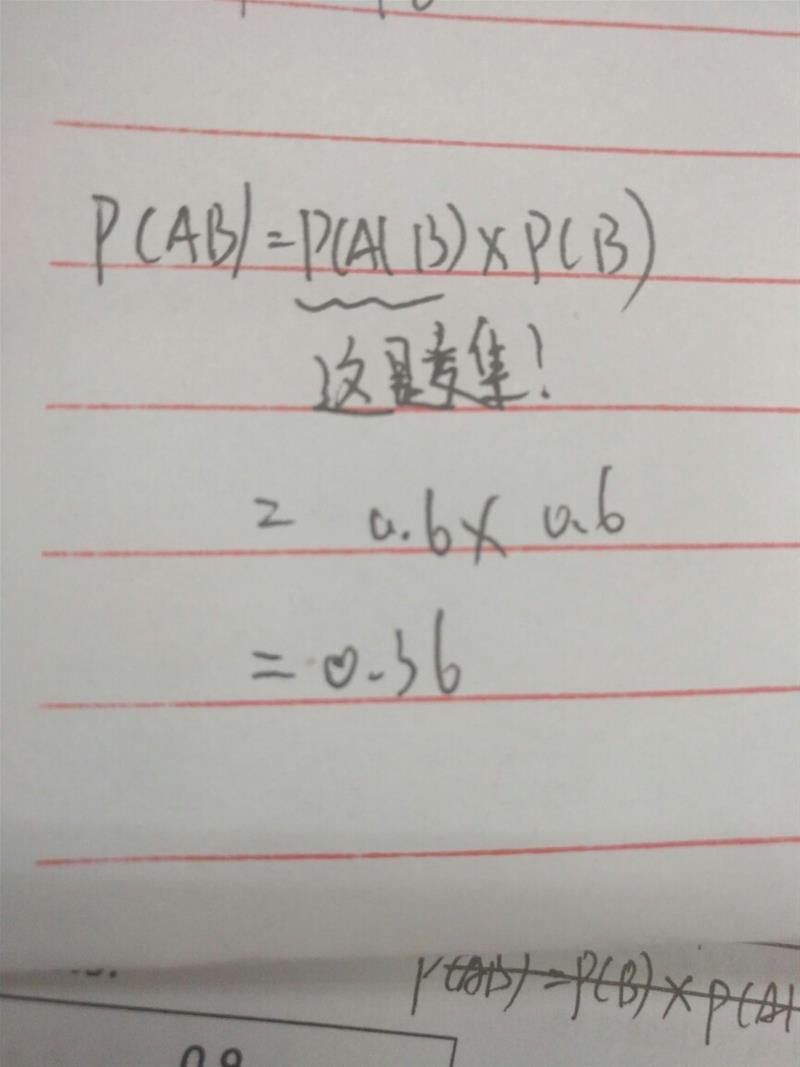 P(AB)=P(A|B)×P(B)
这是交集!
= 0.6×0.6
=0.36
P(AB)=P(B)×P(A|
0.9